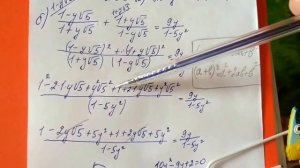 1-y√5
1+y√5
б) (1-y√5)/(1+y√5) + (1+y√5)/(1-y√5) = 9y/(1-5y²)
((1-y√5)² + (1+y√5)²)/((1+y√5)(1-y√5)) = 9y
(a+b)²=a²+2ab+b²
(1²-2·1y√5+y√5²+1²+2·1y√5+y²√5²)/(1-5y²) = 9y/(1-5y²)
(1-2y√5+5y²+1+2y√5+5y²)/(1-5y²) = 9y/(1-5y²)
10y²-9y+2=0